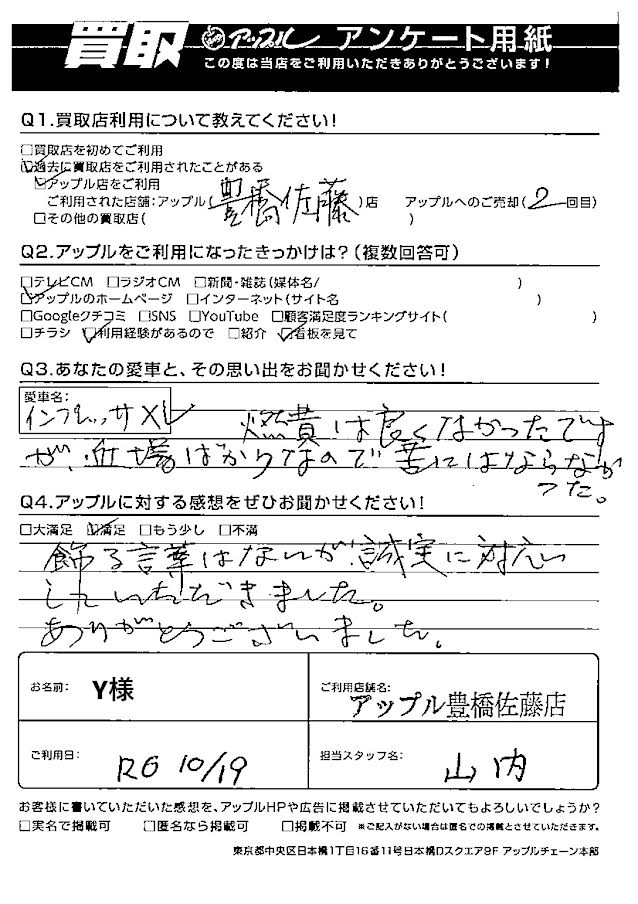 買取 アップル アンケート用紙
この度は当店をご利用いただきありがとうございます!
Q1.買取店利用について教えてください!
□買取店を初めてご利用
☑過去に買取店をご利用されたことがある
☑アップル店をご利用
ご利用された店舗:アップル(豊橋佐藤)店 アップルへのご売却(2回目)
□その他の買取店( )
Q2.アップルをご利用になったきっかけは?(複数回答可)
□テレビCM □ラジオCM □新聞・雑誌(媒体名/ )
☑アップルのホームページ □インターネット(サイト名 )
□Googleクチコミ □SNS □YouTube □顧客満足度ランキングサイト( )
□チラシ ☑利用経験があるので □紹介 ☑看板を見て
Q3.あなたの愛車と、その思い出をお聞かせください!
愛車名:
インプレッサXV 燃費は良くなかったです
が、近場ばかりなので苦にはならなか
った。
Q4.アップルに対する感想をぜひお聞かせください!
□大満足 ☑満足 □もう少し □不満
飾る言葉はないが、誠実に対応
していただきました。
ありがとうございました。
お名前: Y様
ご利用店舗名:
アップル豊橋佐藤店
ご利用日: R6 10/19
担当スタッフ名: 山内
お客様に書いていただいた感想を、アップルHPや広告に掲載させていただいてもよろしいでしょうか?
□実名で掲載可 □匿名なら掲載可 □掲載不可 ※ご記入がない場合は匿名での掲載とさせていただきます。
東京都中央区日本橋1丁目16番11号日本橋Dスクエア9F アップルチェーン本部